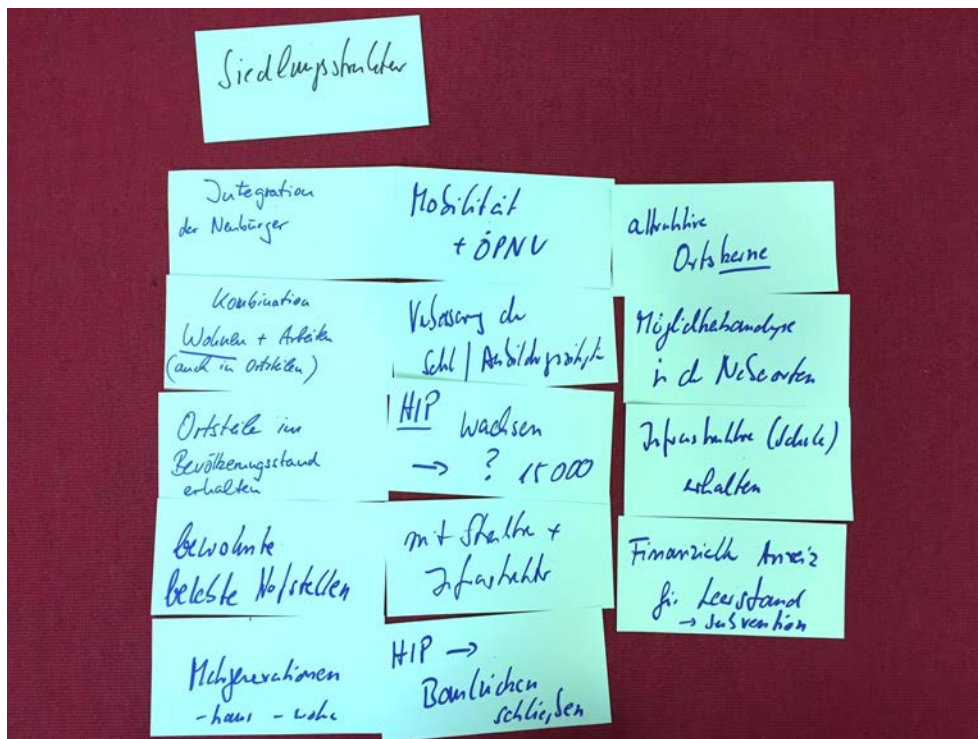 Siedlungsstruktur
Integration
der Neubürger
Kombination
Wohnen + Arbeiten
(auch in Ortsteilen)
Ortsteile im
Bevölkerungsstand
erhalten
bewohnte
belebte Hofstellen
Mehrgenerationen
-haus - wohn
Mobilität
+ ÖPNV
Verbesserung der
Schul / Ausbildungs
HIP wachsen
→ ? 15000
mit Struktur +
Infrastruktur
HIP →
Baulücken
schließen
attraktive
Ortskerne
Möglichkeitsanalyse
in den Nebenorten
Infrastruktur (Schule)
erhalten
Finanzielle Anreiz
für Leerstand
→ Subvention